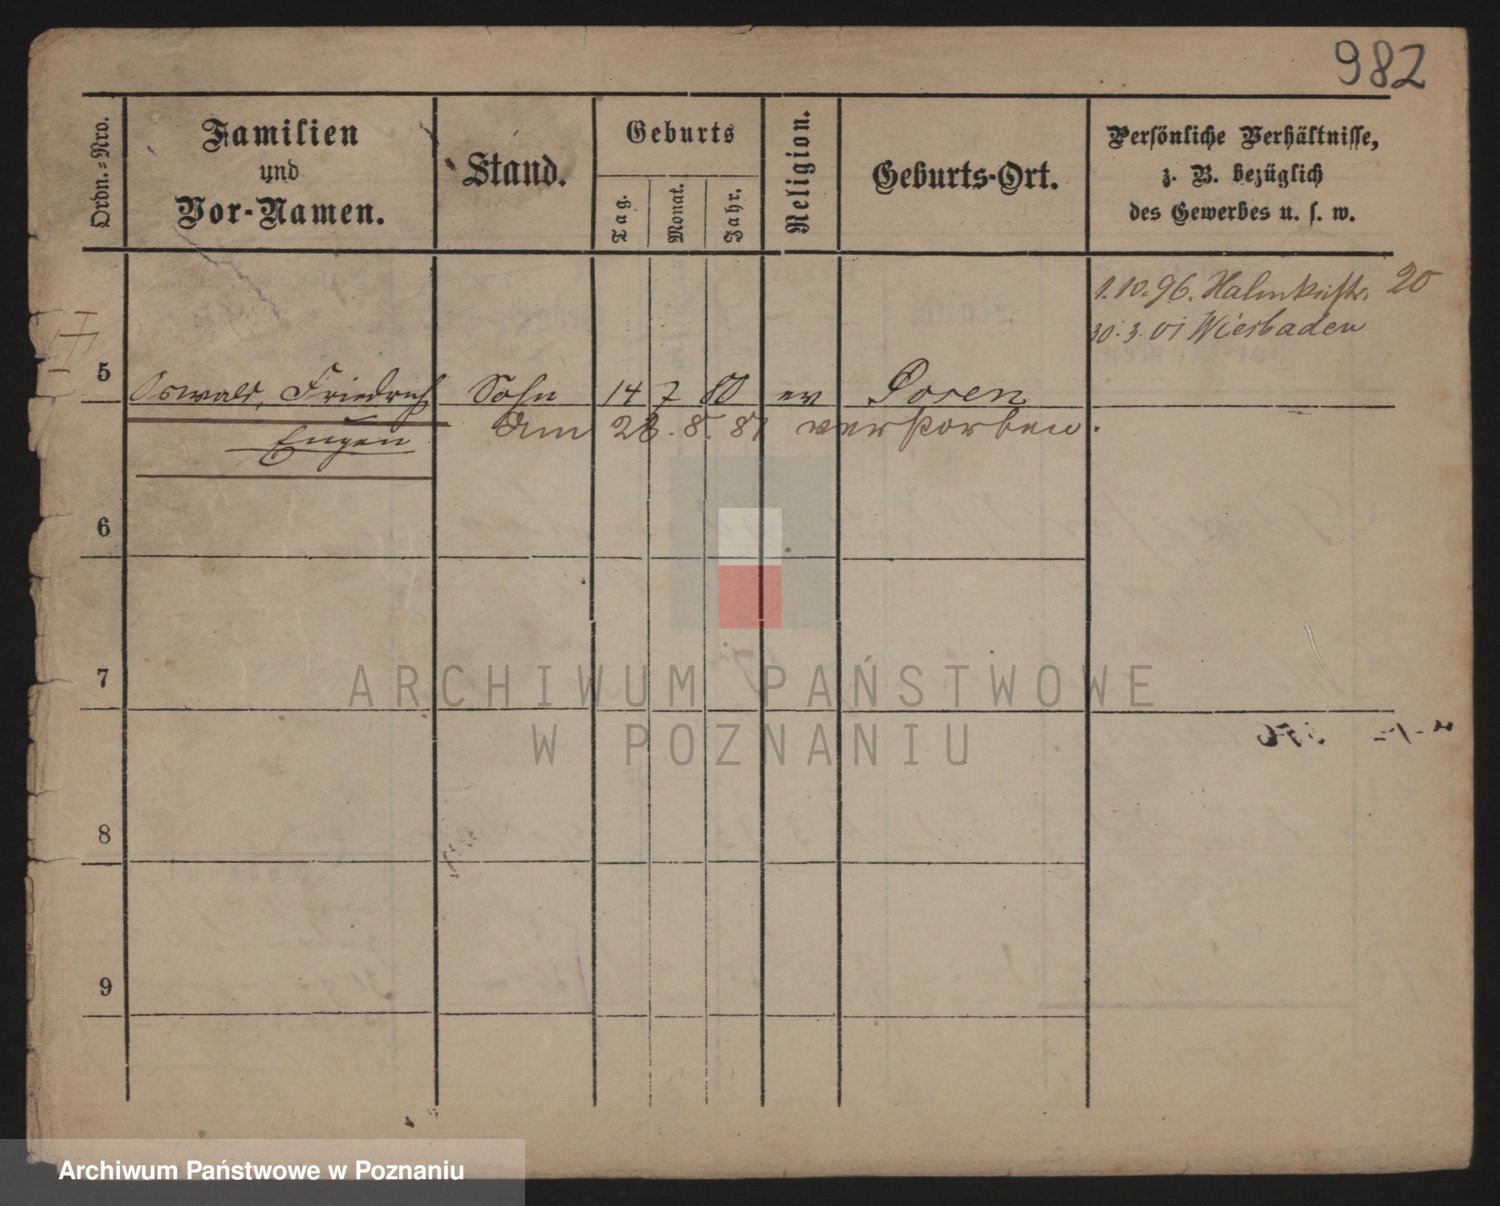 982
Ordn.-Nro.
Familien
und
Vor-Namen.
Stand.
Geburts
Tag.
Monat.
Jahr.
Religion.
Geburts-Ort.
Persönliche Verhältnisse,
z. B. bezüglich
des Gewerbes u. s. w.
1.10.96. 20
30.3.01 Wiesbaden
5 Oswald, Friedrich Sohn 14 7 80 ev Posen
Eugen Am 28. 8. 81 verstorben.
6
7
8
9
ARCHIWUM PAŃSTWOWE
W POZNANIU
Archiwum Państwowe w Poznaniu